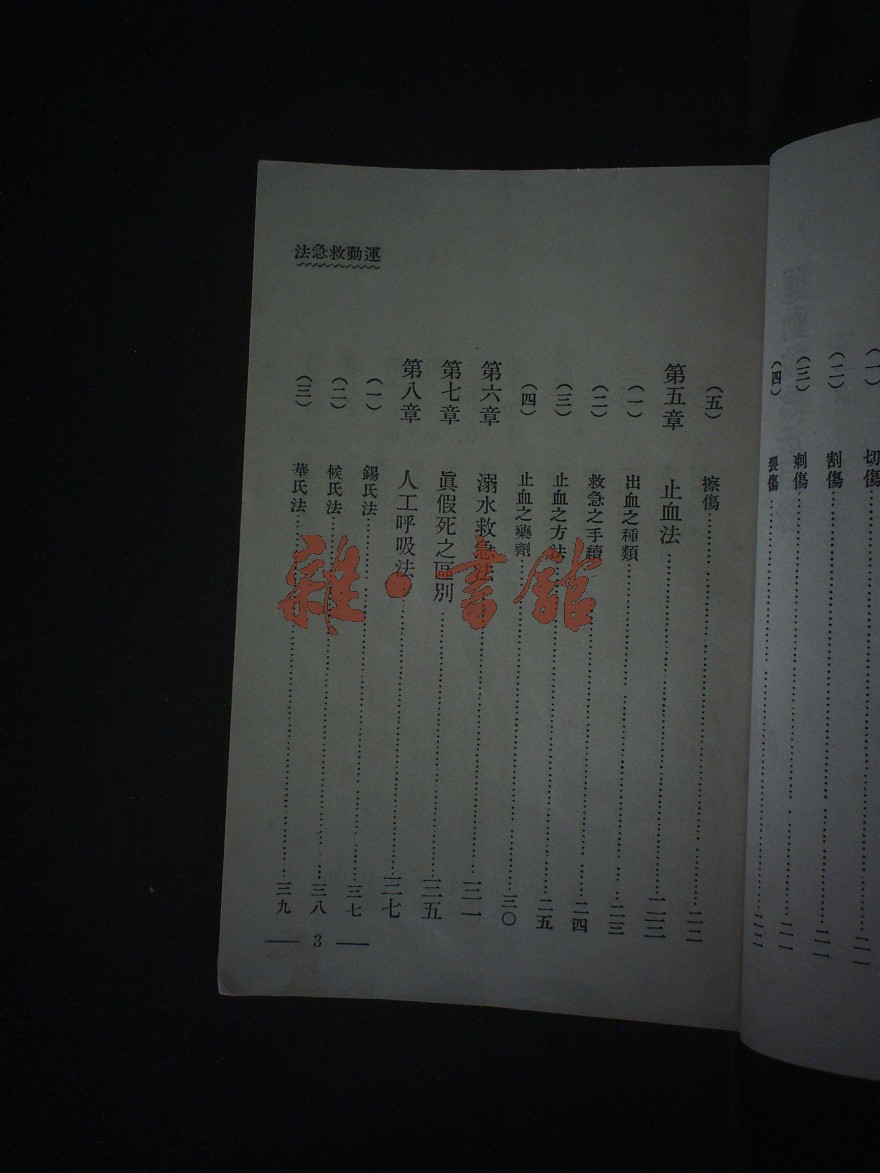 (一) 切傷 二一
(二) 割傷 二一
(三) 刺傷 二一
(四) 裂傷 二二
運動救急法
(五) 擦傷 二二
第五章 止血法 二三
(一) 出血之種類 二三
(二) 救急之手續 二四
(三) 止血之方法 二五
(四) 止血之藥劑 三〇
第六章 溺水救急法 三一
第七章 眞假死之區別 三五
第八章 人工呼吸法 三七
(一) 錫氏法 三七
(二) 候氏法 三八
(三) 華氏法 三九
3
雜·書館